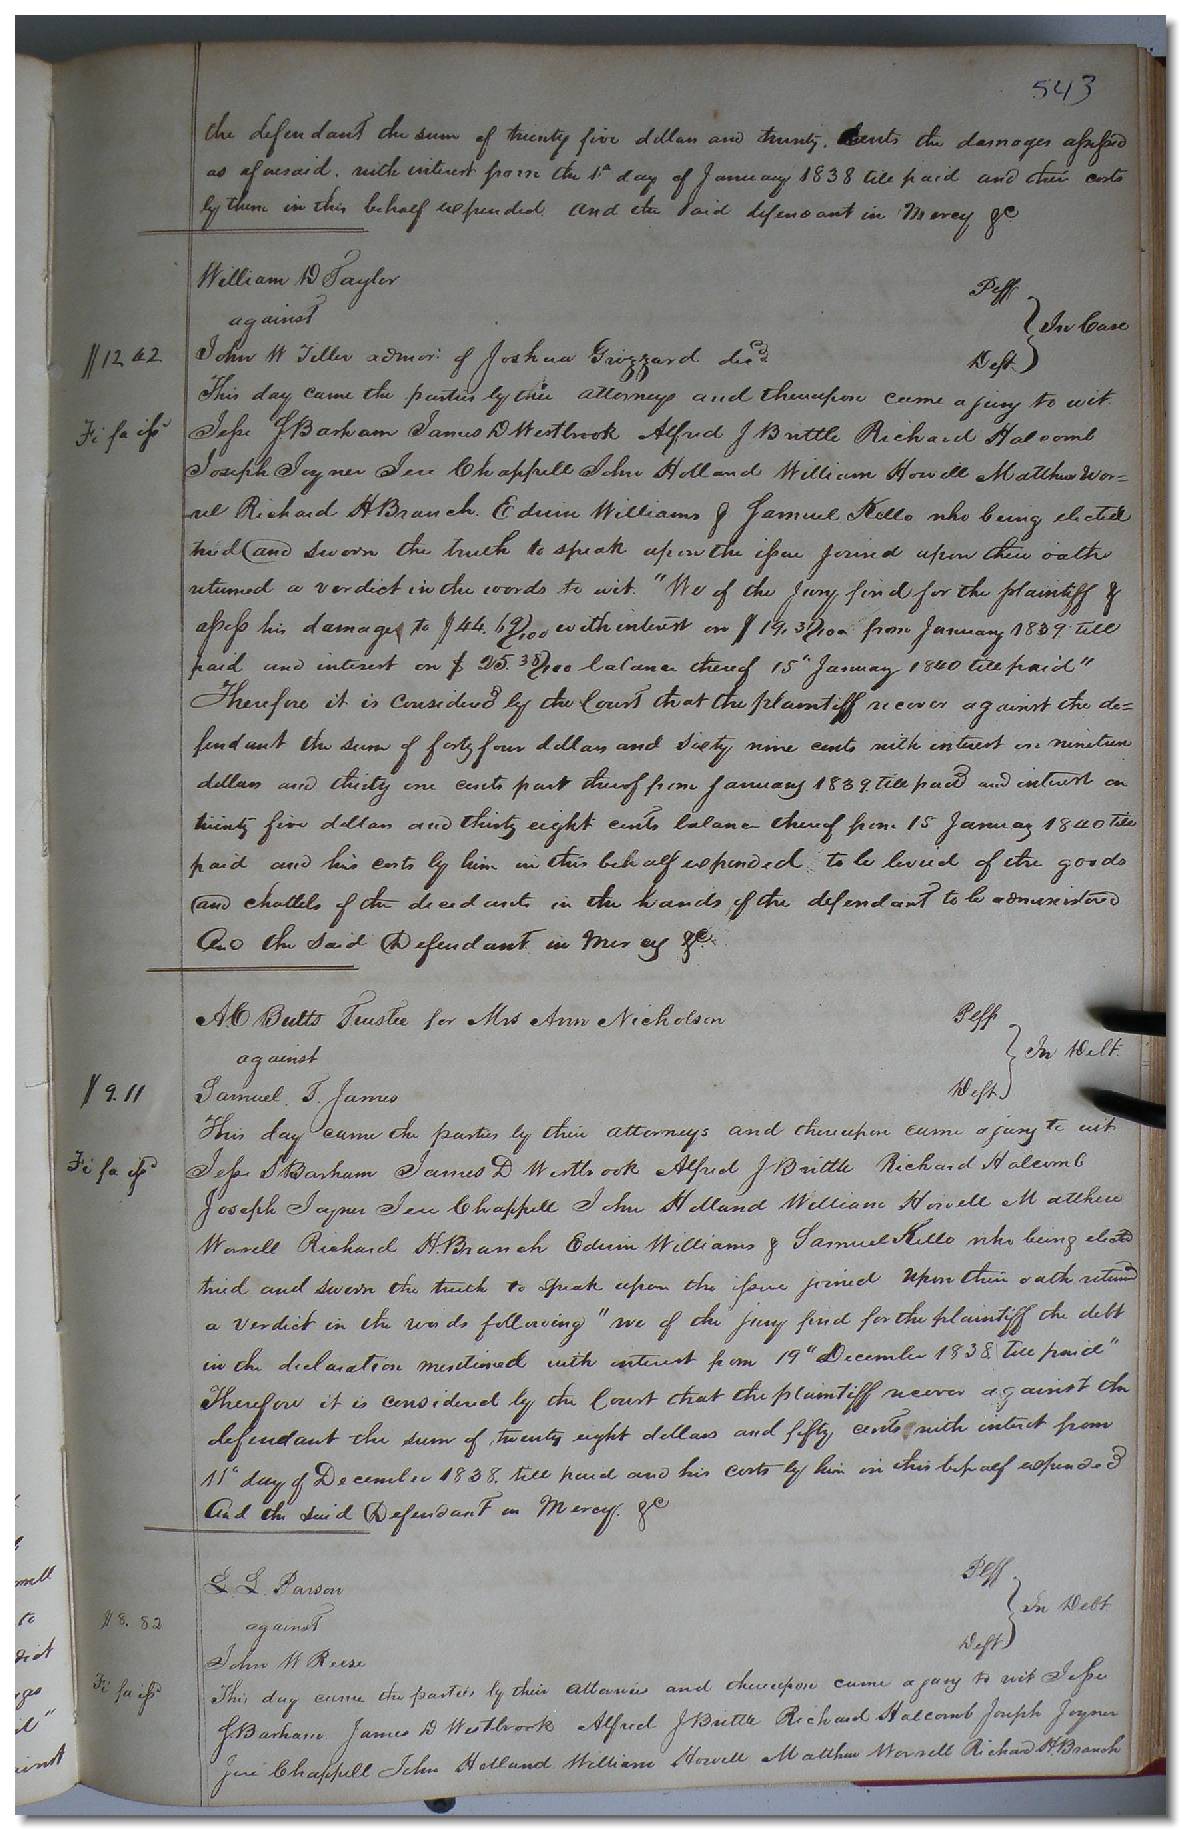 543
the defendant the sum of twenty five dollars and twenty cents the damages assessed
as aforesaid. with interest from the 1st day of January 1838 till paid and their costs
by them in this behalf expended. And the said defendant in Mercy &c
William D Taylor Plff
against In Case
$12.42 John W Teller admor: of Joshua Grizzard decd Deft
This day came the parties by their attorneys and thereupon came a jury to wit.
Fi fa issd Jesse J Barham James D Westbrook Alfred J Brittle Richard Halcomb
Joseph Joyner Jere Chappell John Holland William Howell Matthew Wor=
rell Richard H Branch. Edwin Williams & Samuel Kello who being elected
tried and sworn the truth to speak upon the issue joined upon their oaths
returned a verdict in the words to wit. "We of the Jury find for the plaintiff &
assess his damages to $44.69/100 with interest on $19.31/100 from January 1839 till
paid and interest on $25.38/100 balance thereof 15th January 1840 till paid"
Therefore it is considered by the Court that the plaintiff recover against the de=
fendant the sum of forty four dollars and sixty nine cents with interest on nineteen
dollars and thirty one cents part thereof from January 1839 till paid and interest on
twenty five dollars and thirty eight cents balance thereof from 15 January 1840 till
paid and his costs by him in this behalf expended. to be levied of the goods
and chattels of the decedants in the hands of the defendant to be administered
And the said Defendant in Mercy &c.
A C Butts Trustee for Mrs Ann Nicholson Plff
against In Debt.
$9.11 Samuel. T. James Deft
This day came the parties by their attorneys and thereupon came a jury to wit
Fi fa issd Jesse J Barham James D Westbrook Alfred J Brittle Richard Halcomb
Joseph Joyner Jere Chappell John Holland William Howell Matthew
Worrell Richard H. Branch Edwin Williams & Samuel Kello who being elected
tried and sworn the truth to speak upon the issue joined upon their oath returned
a verdict in the words following "we of the jury find for the plaintiff the debt
in the declaration mentioned with interest from 19th December 1838 till paid"
Therefore it is considered by the Court that the plaintiff recover against the
defendant the sum of twenty eight dollars and fifty cents with interest from
11th day of December 1838. till paid and his costs by him in this behalf expended
And the said Defendant in Mercy. &c
L. L. Parson Plff
$8.82 against In Debt
John W Reese Deft
Fi fa issd This day came the parties by their attornies and thereupon came a jury to wit Jesse
J Barham James D Westbrook Alfred J Brittle Richard Halcomb Joseph Joyner
Jere Chappell John Holland William Howell Matthew Worrell Richard H. Branch